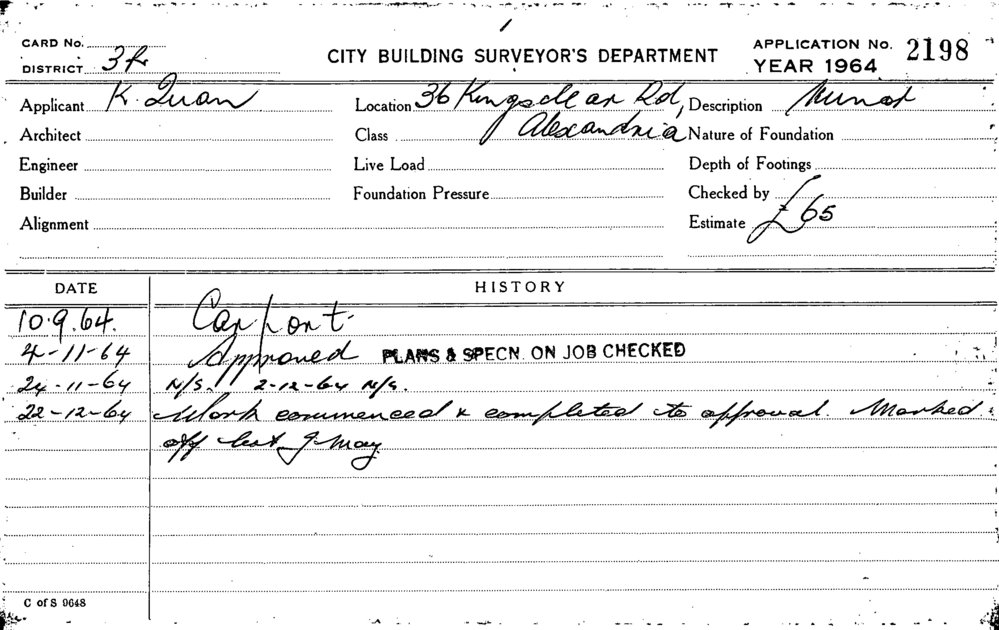 CARD No.
DISTRICT 3R
CITY BUILDING SURVEYOR'S DEPARTMENT
APPLICATION No. 2198
YEAR 1964
Applicant K. Quan
Location 36 Kingsclear Rd, Alexandria
Description Minor
Architect
Class
Nature of Foundation
Engineer
Live Load
Depth of Footings
Builder
Foundation Pressure
Checked by
Alignment
Estimate £65
DATE
HISTORY
10.9.64. Carport
4-11-64 Approved PLANS & SPECN. ON JOB CHECKED
24-11-64 N/S. 2-12-64 N/S.
22-12-64 Work commenced & completed to approval. Marked
off May
C of S 9648